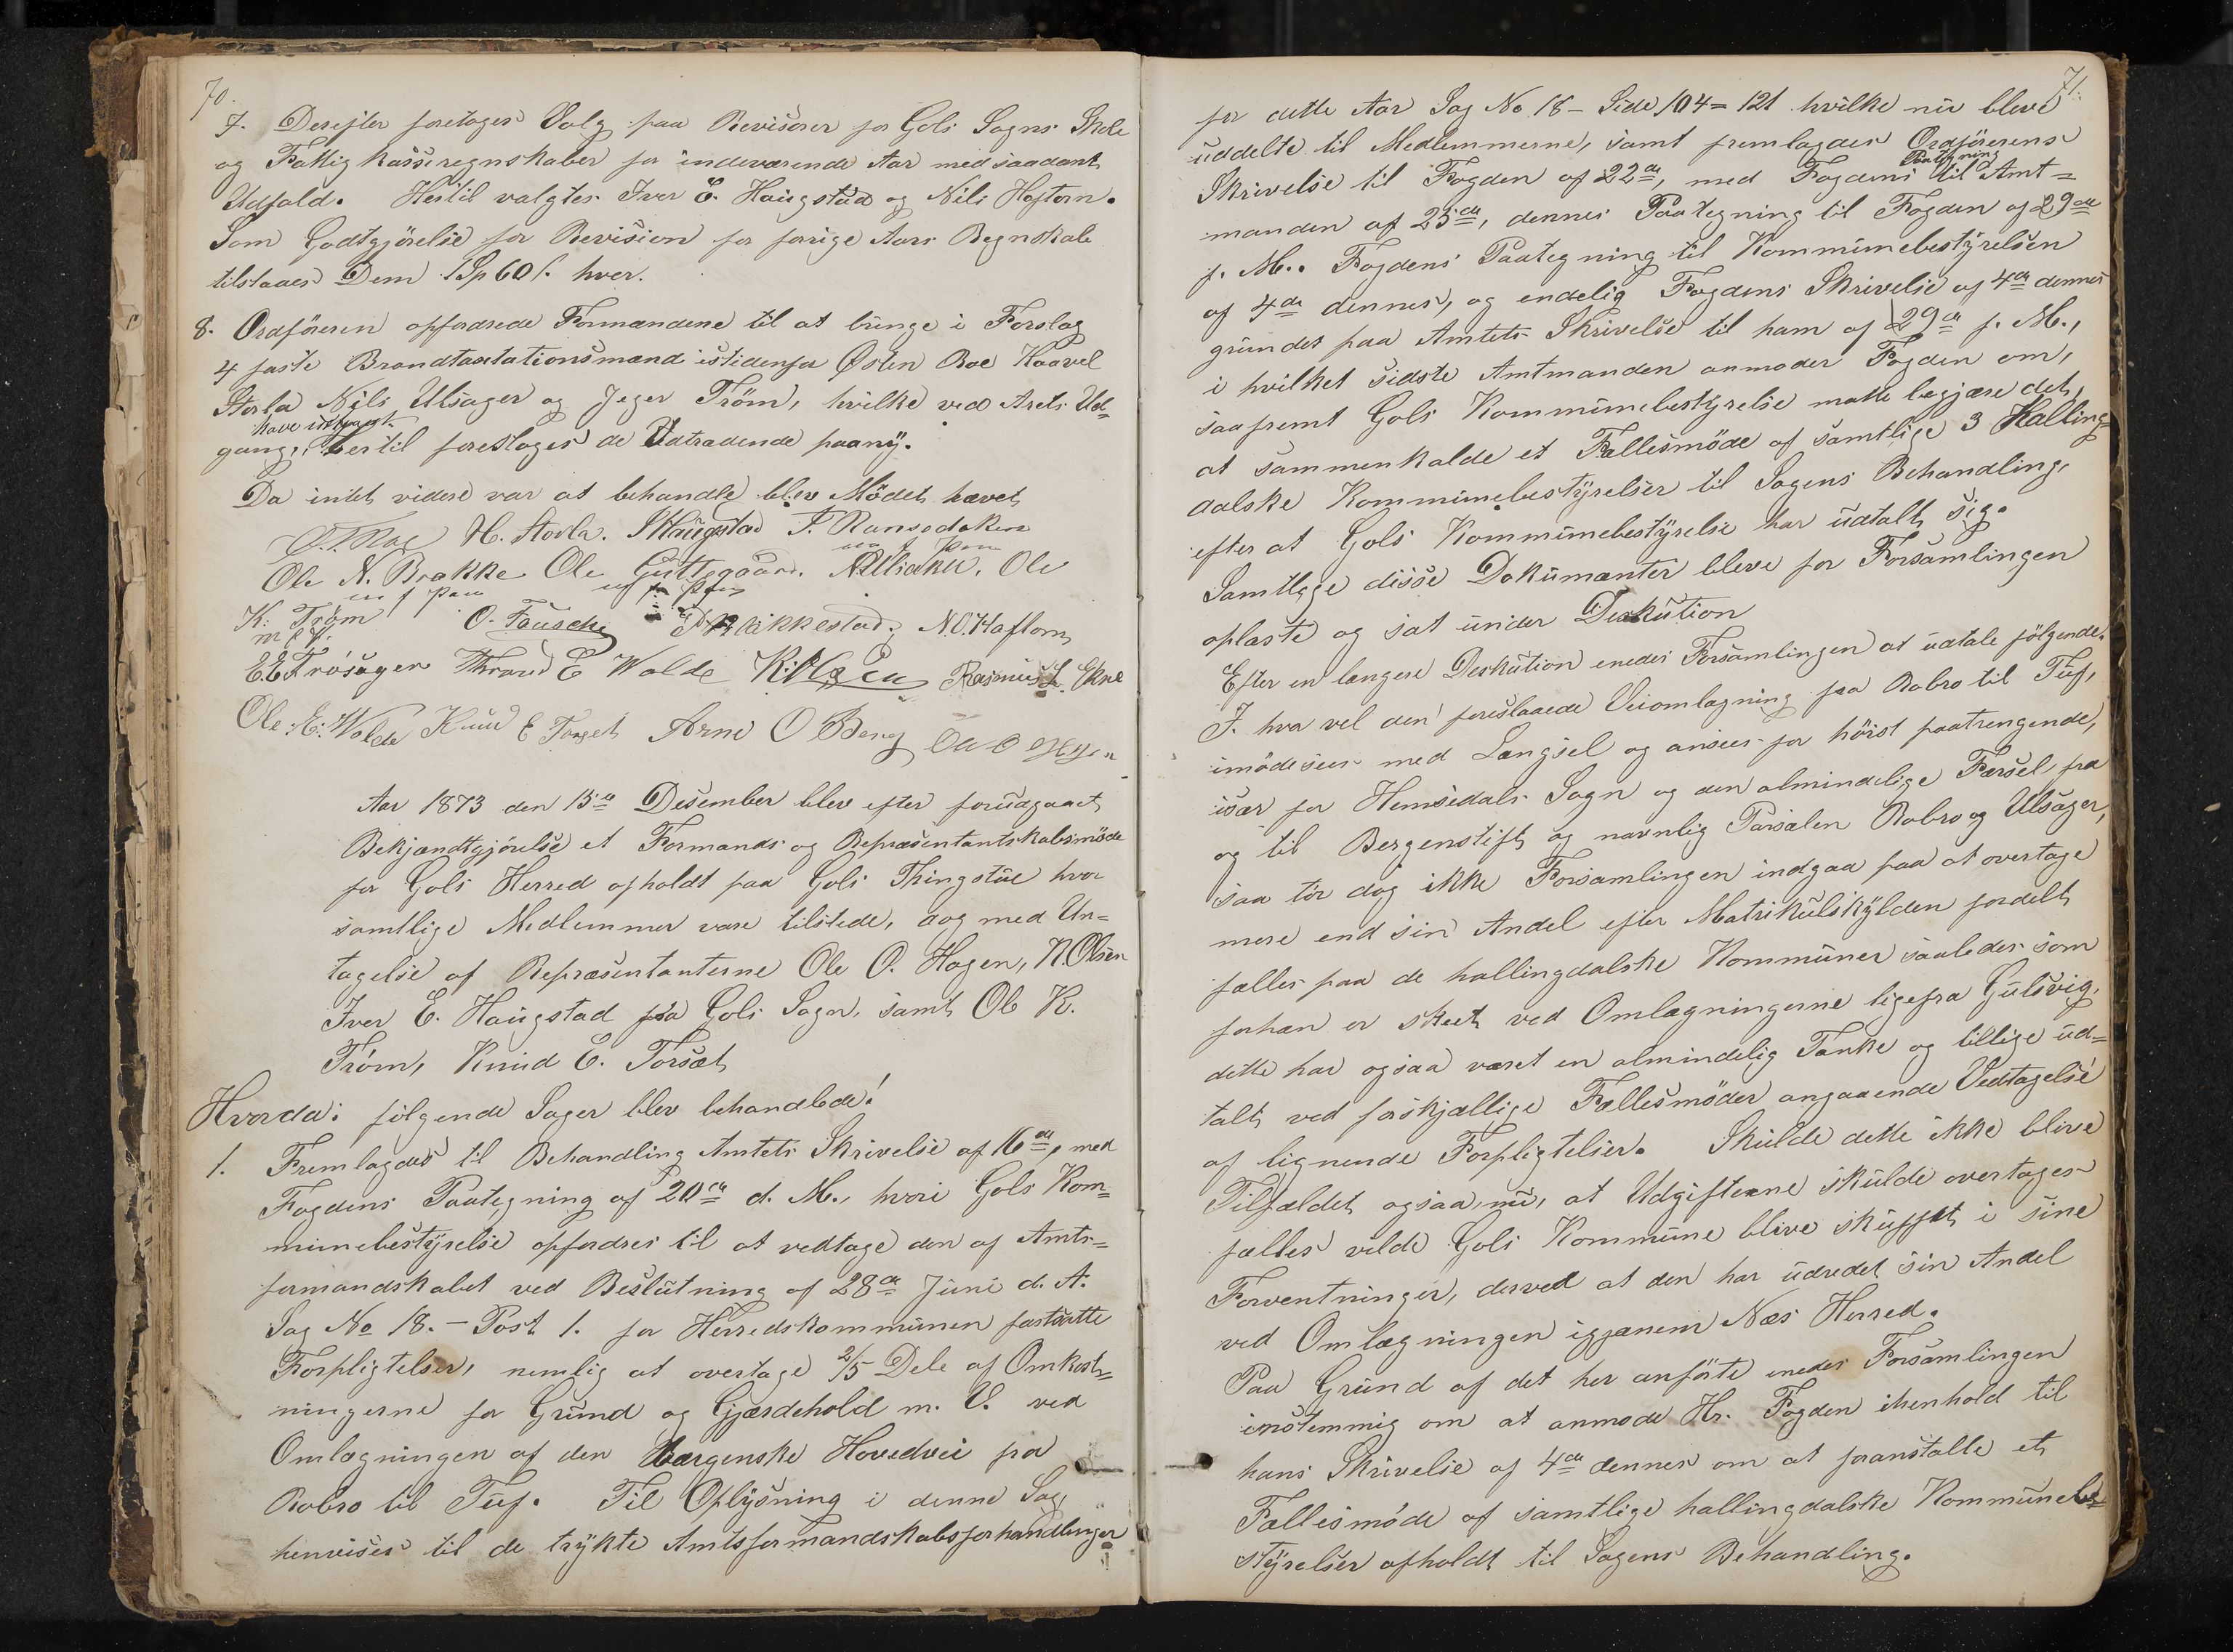 70.
7. Derefter foretoges Valg paa Revisorer for Gols Sogns Skole
og Fattigkasseregnskaber for indeværende Aar med saadant
Udfald. Hertil valgtes Iver E. Haugstad og Nils Heftorn.
Som Godtgjörelse for Revision for forrige Aars Regnskab
tilstaaes Dem 1 Sp 60 s. hver.
8. Ordföreren opfordrede Formændene til at bringe i Forslag
4 faste Brandtaxtationsmænd istedenfor Østen Roe Haavel
Storla Nils Ulsager og Jeger Tröm, hvilke ved Arets Ud=
have udtjent
gang, hertil foresloges de Udtrædende paany.
Da intet videre var at behandle blev Mödet hævet
O.T. Roe H. Storla. I Haugstad T. Runsodokern
m f Pen
Ole N. Brekke Ole Guttegaard. Ole
m f Pen m f Pen
K. Tröm O. Fausche Mikkestad. N.O. Haftorn
m f P.
E.E Trøsager Thrond E Wolde K. Rasmus L. Ekre
Ole. E. Wolde Knud E Torset Arne O Berg Ole O Hagen
Aar 1873 den 15de Desember blev efter forudgaaet
Bekjændtgjörelse et Formands og Repræsentantskabsmöde
for Gols Herred afholdt paa Gols Thingstue hvor
samtlige Medlemmer vare tilstede, dog med Un=
tagelse af Repræsentanterne Ole O. Hagen, N. Olsen
Iver E. Haugstad fra Gols Sogn, samt Ole K.
Tröm, Knud E. Torset
Hvorda: fölgende Sager blev behandlede!
1. Fremlagdes til Behandling Amtets Skrivelse af 16de, med
Fogdens Paategning af 20de d. M., hvori Gols Kom=
munebestyrelse opfordres til at vedtage den af Amts=
formandskabet ved Beslutning af 28de Juni d. A.
Sag No 18. – Post 1. for Herredskommunen fastsatte
Forpligtelser, nemlig at overtage 2/5 Dele af Omkost=
ningerne for Grund og Gjærdehold m. V. ved
Omlægningen af den Bergenske Hovedvei fra
Robro til Tuf. Til Oplysning i denne Sag
henvises til de trykte Amtsformandskabsforhandlinger
71.
for dette Aar Sag No 18 – Side 104 = 121 hvilke nu bleve
uddelte til Medlemmerne, samt fremlagdes Ordförerens
Paategning
Skrivelse til Fogden af 22de, med Fogdens til Amt=
manden af 25de, dennes Paategning til Fogden af 29de
f. M.. Fogdens Paategning til Kommunebestyrelsen
af 4de dennes, og endelig Fogdens Skrivelse af 4de dennes
grundet paa Amtets Skrivelse til ham af 29de f. M.,
i hvilket sidste Amtmanden anmoder Fogden om,
saafremt Gols Kommunebestyrelse matte begjære det,
at sammenkalde et Fællesmöde af samtlige 3 Halling=
dalske Kommunebestyrelser til Sagens Behandling,
efter at Gols Kommunebestyrelse har udtalt sig.
Samtlige disse Dokumænter bleve for Forsamlingen
oplæste og sat under Deskution
Efter en længere Deskution enedes Forsamlingen at udtale fölgende.
I. hva vel den foreslaaede Veiomlægning fra Robro til Tuf,
imödesees med Længsel og ansees for höist paatrengende,
især for Hemsedals Sogn og den almindelige Færsel fra
og til Bergenstift og navnlig Parsælen Robro og Ulsager,
saa tör dog ikke Forsamlingen indgaa paa at overtage
mere end sin Andel efter Matrikulskylden fordelt
fælles paa de hallingdalske Kommuner saaledes som
forhæn er skeet ved Omlægningerne ligefra Gulsvig,
dette har ogsaa været en almindelig Tanke og tillige ud=
talt ved forskjællige Fællesmöder angaaende Vedtagelse
af lignende Forpligtelser. Skulde dette ikke blive
Tilfældet ogsaa nu, at Udgifterne skulde overtages
fælles vilde Gols Kommune blive skuffet i sine
Forventninger, derved at den har udredet sin Andel
ved Omlægningen igjænem Næs Herred.
Paa Grund af det her anförte enedes Forsamlingen
enstemmig om at anmode Hr. Fogden ihenhold til
hans Skrivelse af 4de dennes om at foranstalte et
Fællesmöde af samtlige hallingdalske Kommunebe=
styrelser afholdt til Sagens Behandling.